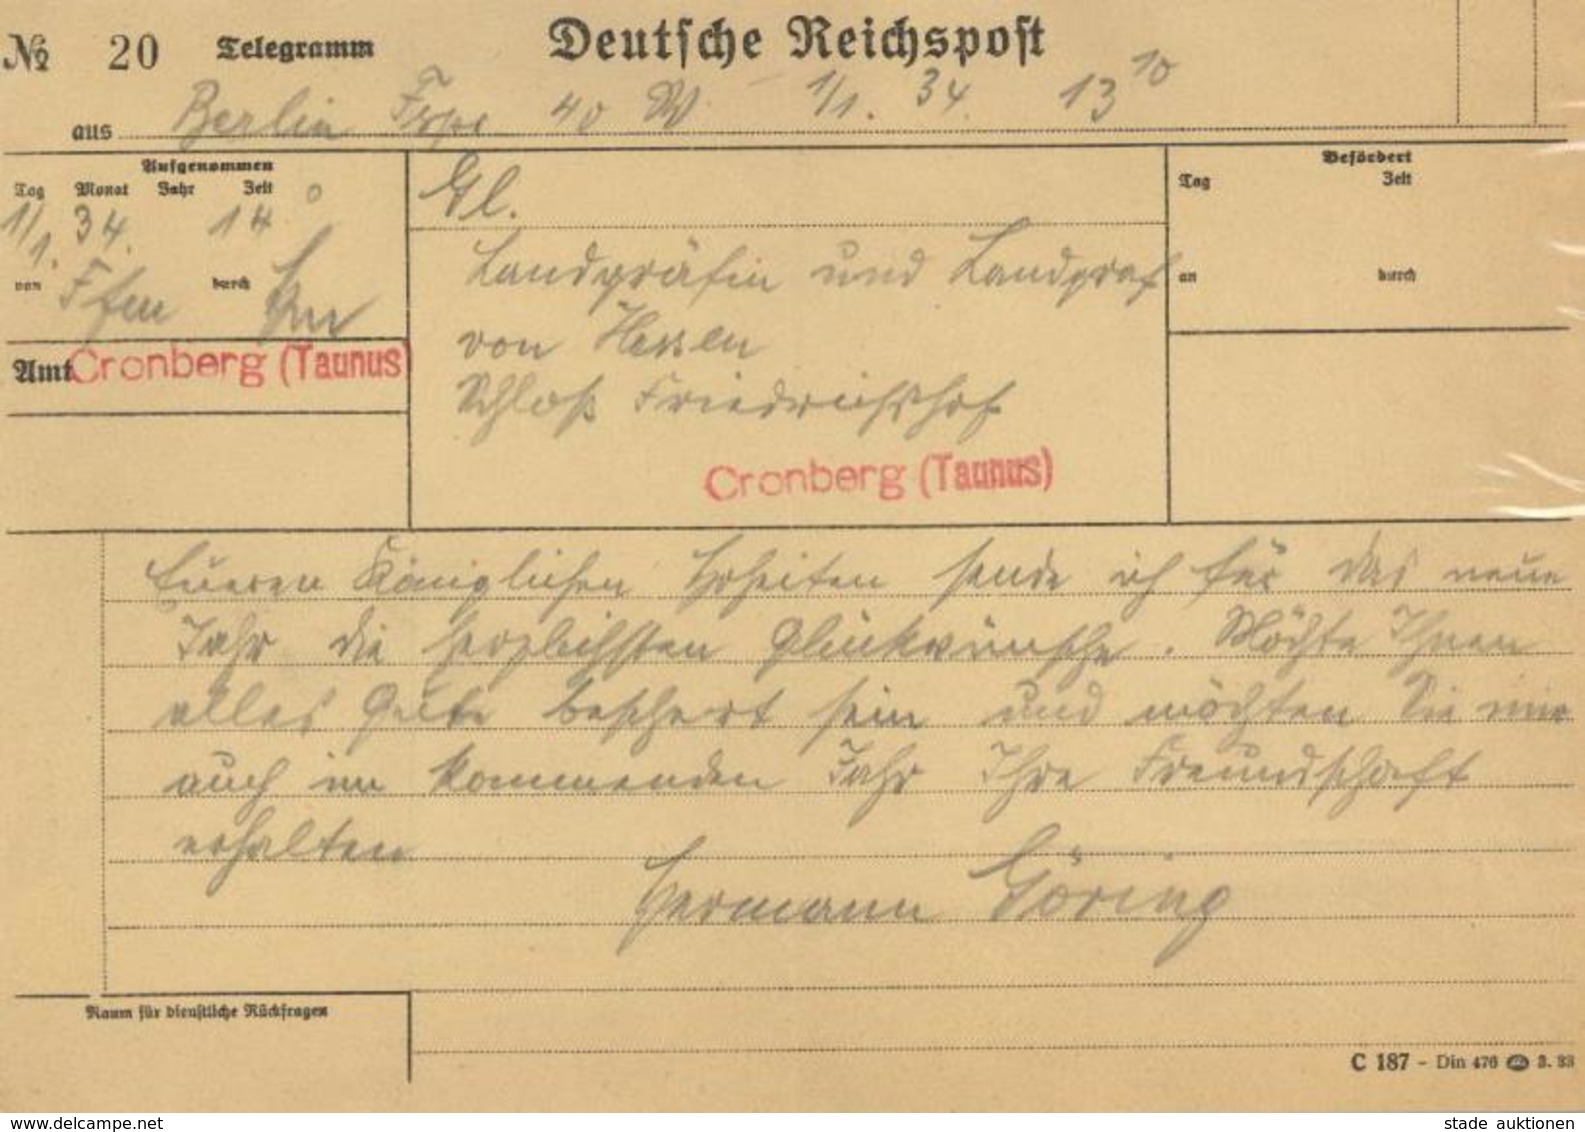 № 20 Telegramm Deutsche Reichspost
aus Berlin 40 W 1/1. 34. 13 10
Aufgenommen
Tag Monat Jahr Zeit
1/1. 34. 14 0
von Ffm durch
Amt Cronberg (Taunus)
Gl.
Landgräfin und Landgraf
von Hessen
Schloß Friedrichshof
Cronberg (Taunus)
Befördert
Tag Zeit
an durch
Eueren Königlichen Hoheiten sende ich für das neue
Jahr die herzlichsten Glückwünsche. Möchte Ihnen
alles Gute beschert sein und möchten Sie mir
auch im kommenden Jahr Ihre Freundschaft
erhalten
Hermann Göring
Raum für dienstliche Rückfragen
C 187 - Din 476 3. 33
stade auktionen
www.delcampe.net